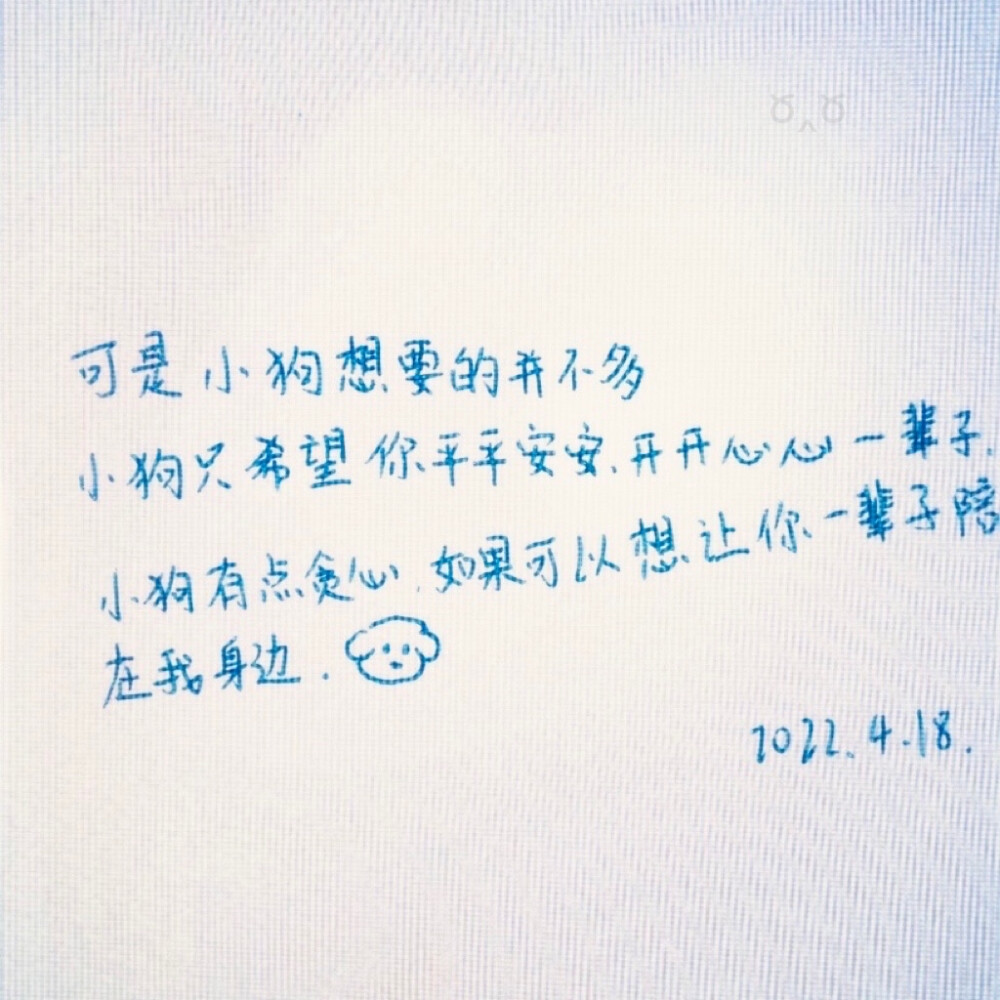 可是小狗想要的并不多
小狗只希望你平平安安、开开心心一辈子.
小狗有点贪心,如果可以想让你一辈子陪
在我身边.
2022.4.18.